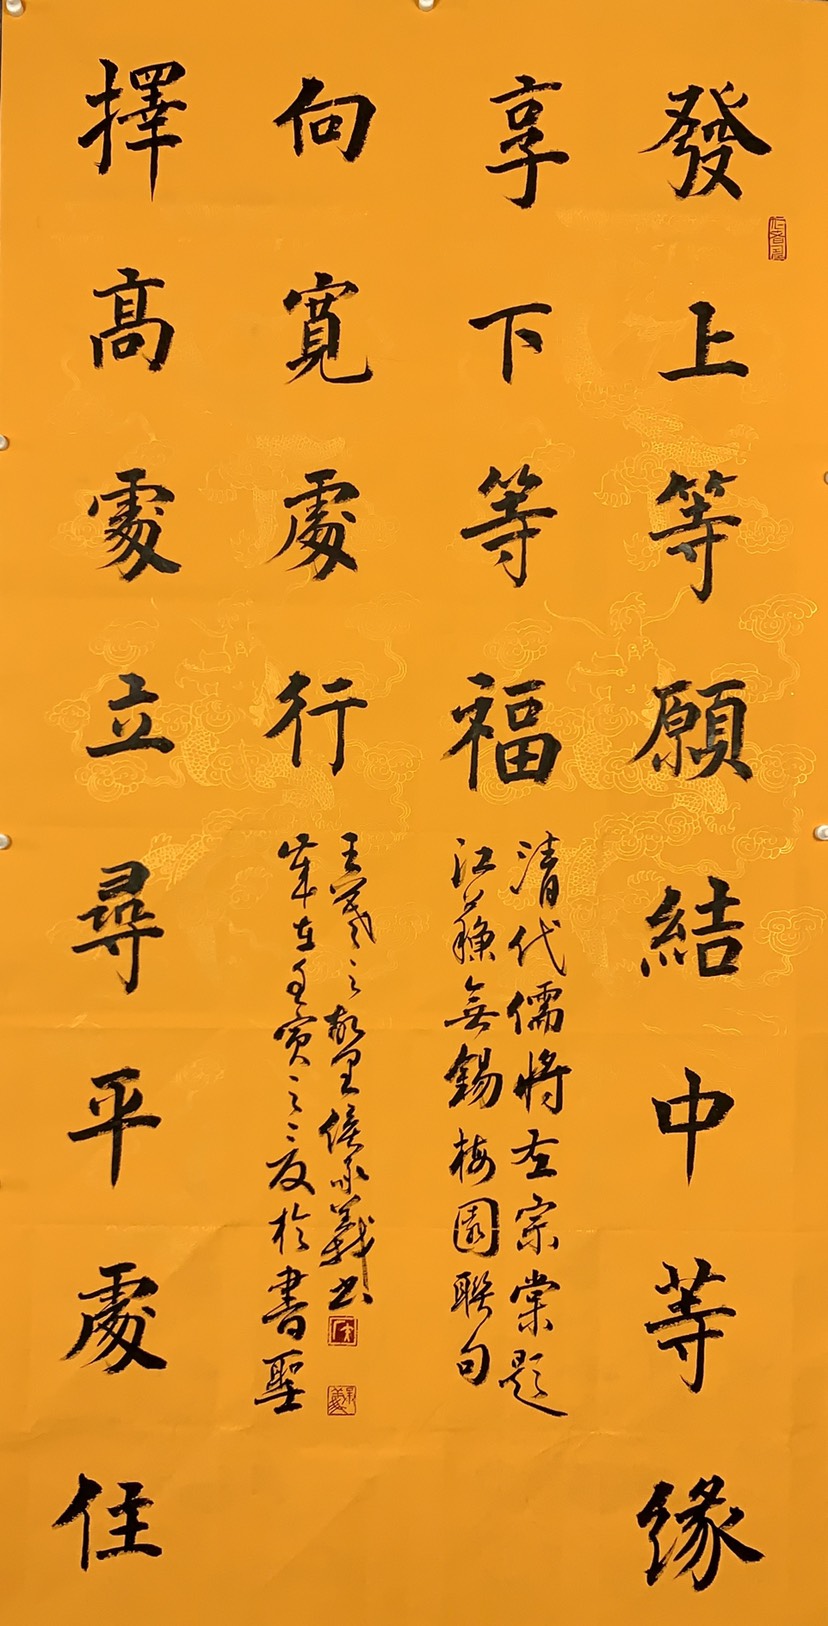 發上等願結中等緣
享下等福
清代儒將左宗棠題
江蘇無錫梅園聯句
擇高處立尋平處住
向寬處行
歲在壬寅之夏於書聖
王羲之故里侯承義書